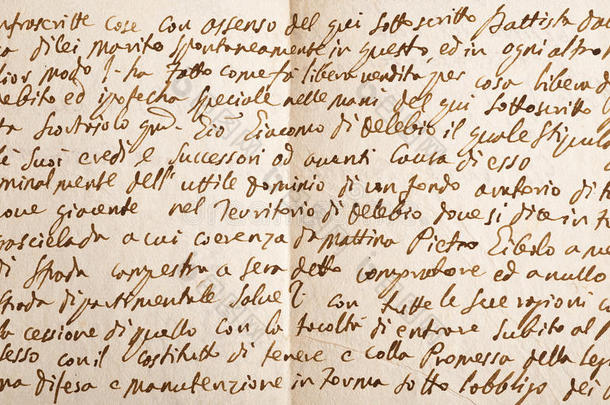 nfroscritte cose con assenso del qui sottoscritto Battista
di lei marito spontaneamente in questo, ed in ogni altro
lior modo ha fatto come fà libera vendita, per cosa libera
debito ed ipotecha speciale nelle mani del qui sottoscritto
Gio Giacomo di Delebio il quale stipula
suoi eredi e successori ad aventi causa di esso
minalmente dell' uttile dominio di un fondo aratorio di
giacente nel Territorio di Delebio dove si dice in
a cui coerenza da mattina Pietro a
di strada campestra a sera detto compratore ed a nullo
strada dipartimentale salve con tutte le sue ragioni
la cessione di quello con la facoltà di entrare subito al
esso con il costitutto di tenere e colla Promessa della
difesa e manutenzione in forma sotto l'obbligo dei